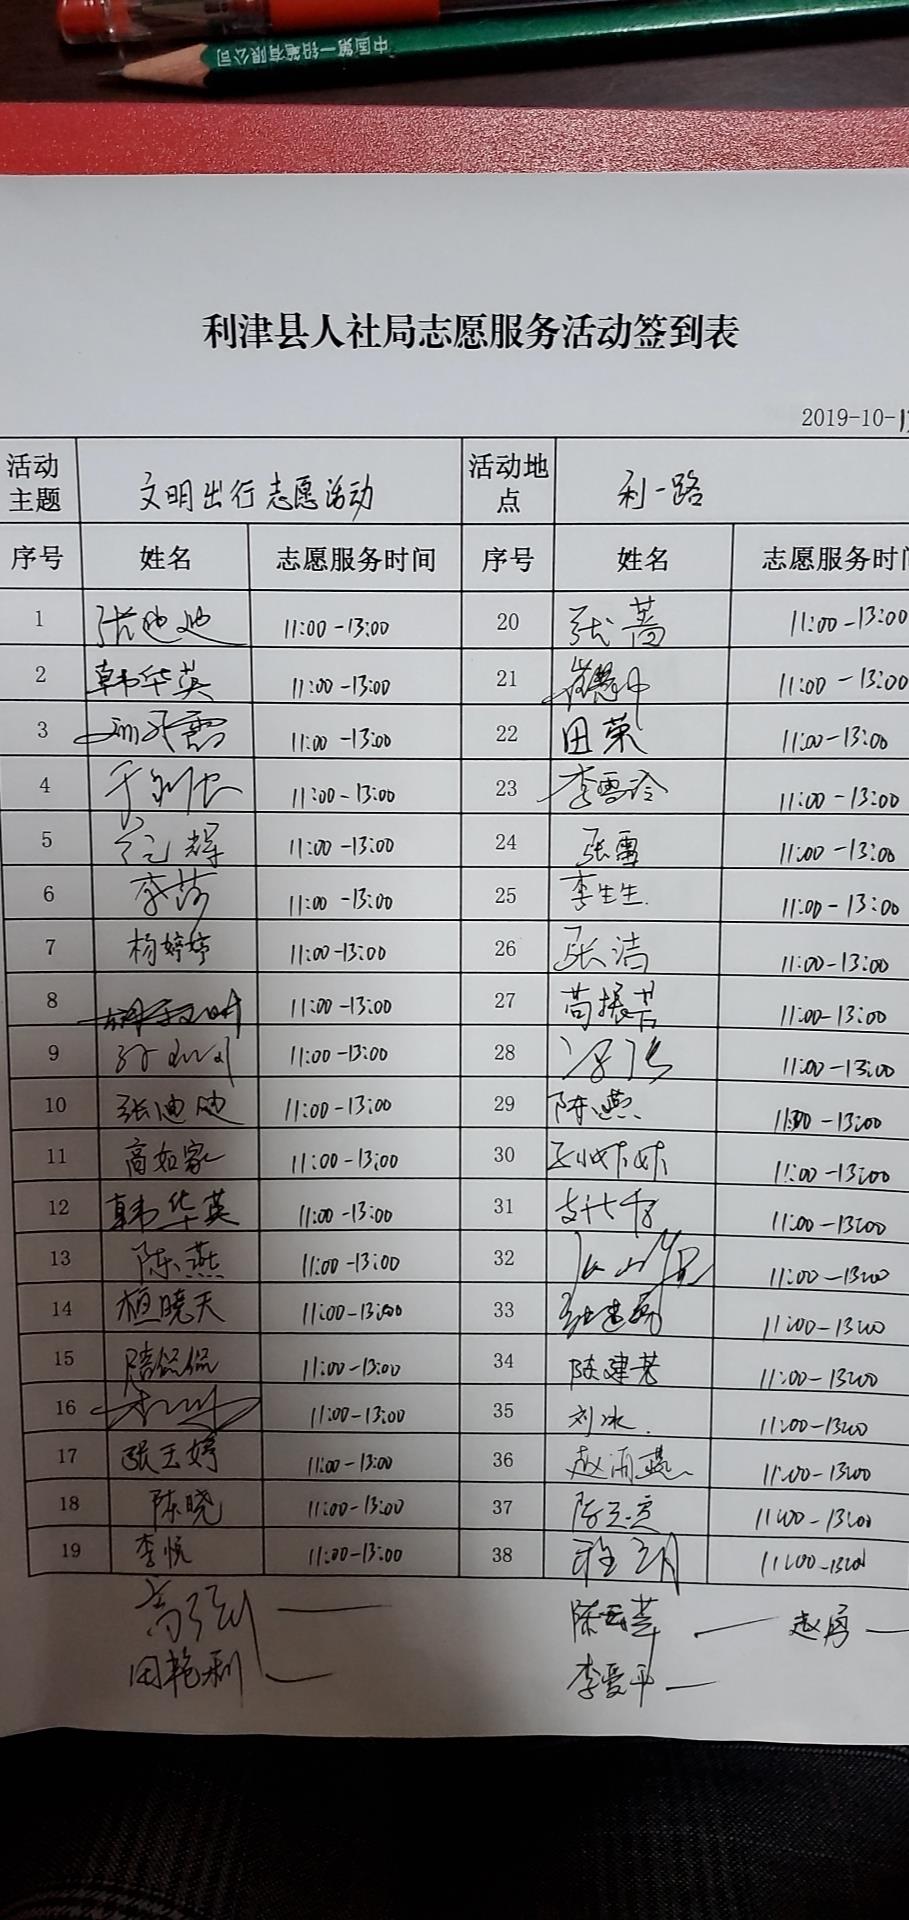 中国第一铅笔有限公司
利津县人社局志愿服务活动签到表
2019-10-1
活动主题 文明出行志愿活动 活动地点 利一路
序号 姓名 志愿服务时间 序号 姓名 志愿服务时间
1 张迪迪 11:00-13:00 20 张蔷 11:00-13:00
2 韩华英 11:00-13:00 21 11:00-13:00
3 11:00-13:00 22 田荣 11:00-13:00
4 11:00-13:00 23 李雪玲 11:00-13:00
5 11:00-13:00 24 张雪 11:00-13:00
6 李莎 11:00-13:00 25 李生生. 11:00-13:00
7 杨婷婷 11:00-13:00 26 张洁 11:00-13:00
8 11:00-13:00 27 苟振芳 11:00-13:00
9 11:00-13:00 28 11:00-13:00
10 张迪迪 11:00-13:00 29 陈燕 11:00-13:00
11 高如家 11:00-13:00 30 11:00-13:00
12 韩华英 11:00-13:00 31 11:00-13:00
13 陈燕 11:00-13:00 32 11:00-13:00
14 桓晓天 11:00-13:00 33 11:00-13:00
15 陪侃侃 11:00-13:00 34 陈建芳 11:00-13:00
16 11:00-13:00 35 刘冰. 11:00-13:00
17 张玉婷 11:00-13:00 36 赵雨燕 11:00-13:00
18 陈晓 11:00-13:00 37 11:00-13:00
19 李悦 11:00-13:00 38 11:00-13:00
高 陈云苹 赵勇
田艳利 李爱平